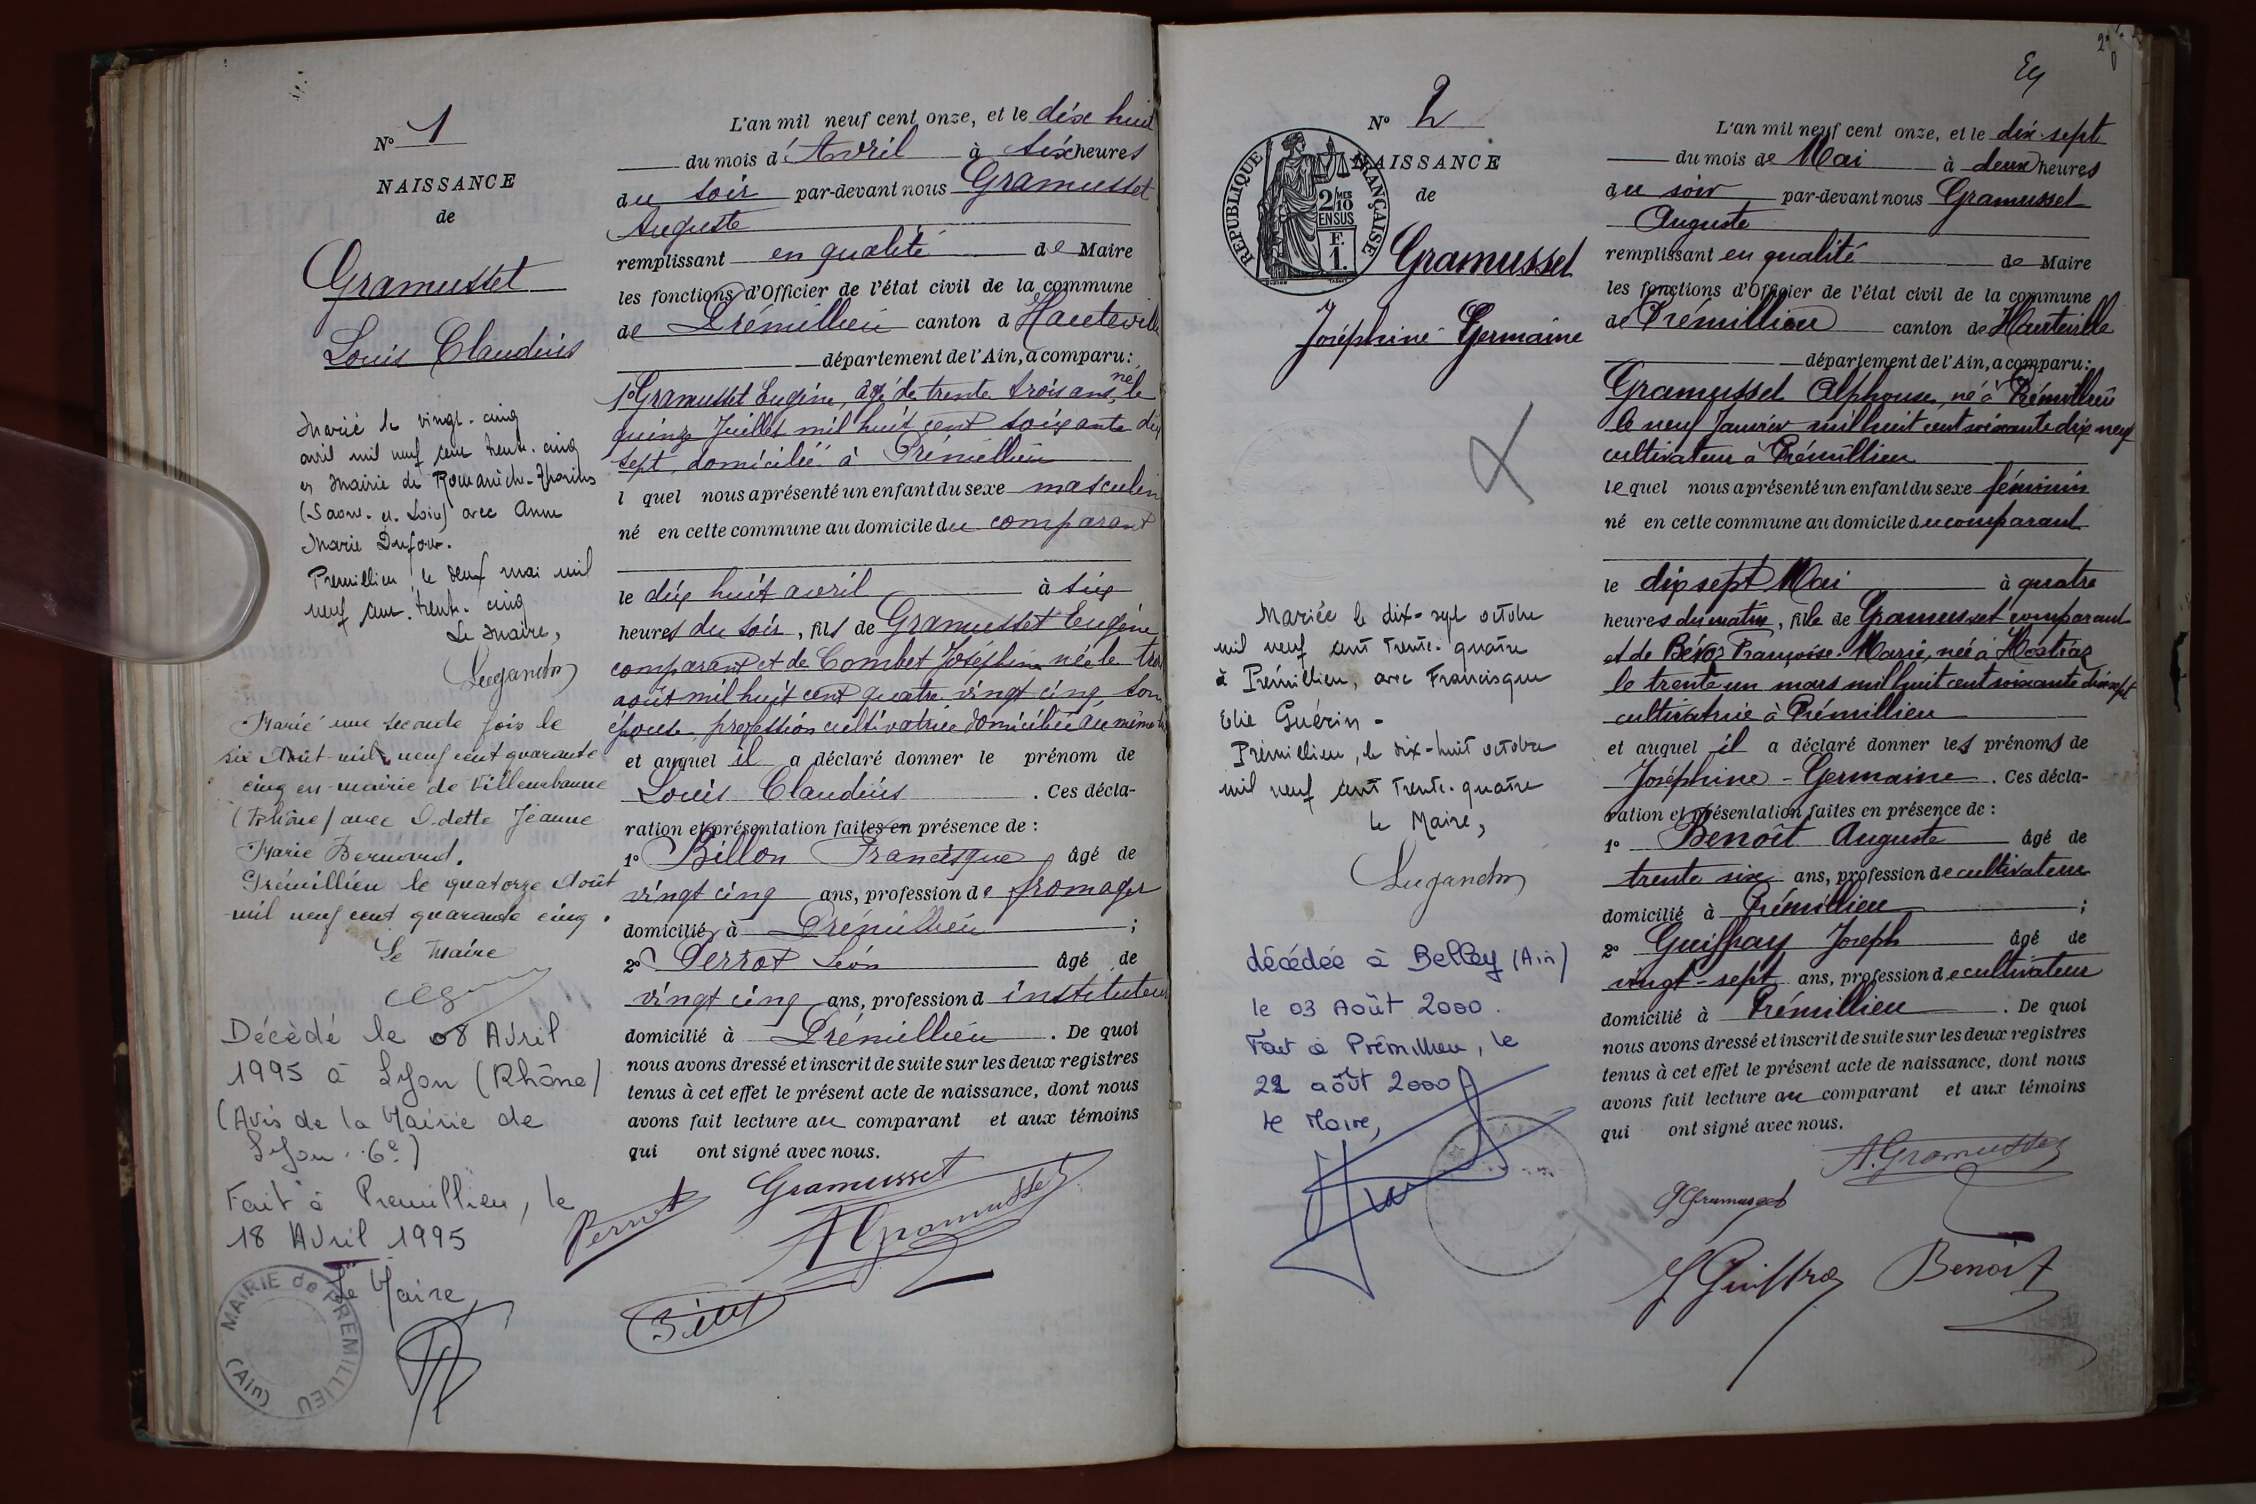 N° 1
NAISSANCE
de
Gramusset
Louis Claudius
Marié le vingt-cinq
avril mil neuf cent trente-cinq
en mairie de Romanèche-Thorins
(Saône-et-Loire) avec Anne
Marie Dufour.
Premillieu le deux mai mil
neuf cent trente-cinq
Le Maire,
Marié une seconde fois le
six Août mil neuf cent quarante
cinq en mairie de Villeurbanne
(Rhône) avec Odette Jeanne
Marie Bernard.
Prémillieu le quatorze Août
mil neuf cent quarante cinq.
Le Maire
Décédé le 08 Avril
1995 à Lyon (Rhône)
(Avis de la Mairie de
Lyon 6e)
Fait à Premillieu, le
18 Avril 1995
Le Maire,
MAIRIE de PREMILLIEU
(Ain)
L'an mil neuf cent onze, et le dix huit
du mois d'Avril à six heures
du soir par-devant nous Gramusset
Auguste
remplissant en qualité de Maire
les fonctions d'Officier de l'état civil de la commune
de Prémillieu canton d Hauteville
département de l'Ain, a comparu:
1° Gramusset Eugène, âgé de trente trois ans, né le
quinze Juillet mil huit cent soixante dix
sept, domicilié à Prémillieu
l quel nous a présenté un enfant du sexe masculin
né en cette commune au domicile du comparant
le dix huit avril à six
heures du soir, fils de Gramusset Eugène
comparant et de Combet Joséphine née le trois
août mil huit cent quatre vingt cinq son
épouse, profession cultivatrice domiciliée au même
et auquel il a déclaré donner le prénom de
Louis Claudius . Ces décla-
ration et présentation faites en présence de :
1° Billon Francisque âgé de
vingt cinq ans, profession de fromager
domicilié à Prémillieu ;
2° Perrot Léon âgé de
vingt cinq ans, profession d instituteur
domicilié à Prémillieu . De quoi
nous avons dressé et inscrit de suite sur les deux registres
tenus à cet effet le présent acte de naissance, dont nous
avons fait lecture au comparant et aux témoins
qui ont signé avec nous.
Gramusset
Perrot
A Gramusset
N° 2
NAISSANCE
de
RÉPUBLIQUE FRANÇAISE
2/10 MES
EN SUS
F.
1.
Gramusset
Joséphine-Germaine
Mariée le dix-sept octobre
mil neuf cent trente-quatre
à Prémillieu, avec Francisque
Elie Guérin -
Prémillieu, le dix-huit octobre
mil neuf cent trente-quatre
Le Maire,
décédée à Belley (Ain)
le 03 Août 2000.
Fait à Prémillieu, le
22 août 2000
le Maire,
L'an mil neuf cent onze, et le dix-sept
du mois de Mai à deux heures
du soir par-devant nous Gramusset
Auguste
remplissant en qualité de Maire
les fonctions d'Officier de l'état civil de la commune
de Prémillieu canton de Hauteville
département de l'Ain, a comparu:
Gramusset Alphonse, né à Prémillieu
le neuf Janvier mil huit cent soixante dix neuf
cultivateur à Prémillieu
lequel nous a présenté un enfant du sexe féminin
né en cette commune au domicile du comparant
le dix sept Mai à quatre
heures du matin, fille de Gramusset comparant
et de Françoise-Marie, née à Hostiaz
le trente un mars mil huit cent soixante dix sept
cultivatrice à Prémillieu
et auquel il a déclaré donner les prénoms de
Joséphine-Germaine . Ces décla-
ration et présentation faites en présence de :
1° Benoît Auguste âgé de
trente six ans, profession de cultivateur
domicilié à Prémillieu ;
2° Guiffray Joseph âgé de
vingt-sept ans, profession de cultivateur
domicilié à Prémillieu . De quoi
nous avons dressé et inscrit de suite sur les deux registres
tenus à cet effet le présent acte de naissance, dont nous
avons fait lecture au comparant et aux témoins
qui ont signé avec nous.
A. Gramusset
Gramusset
Benoit